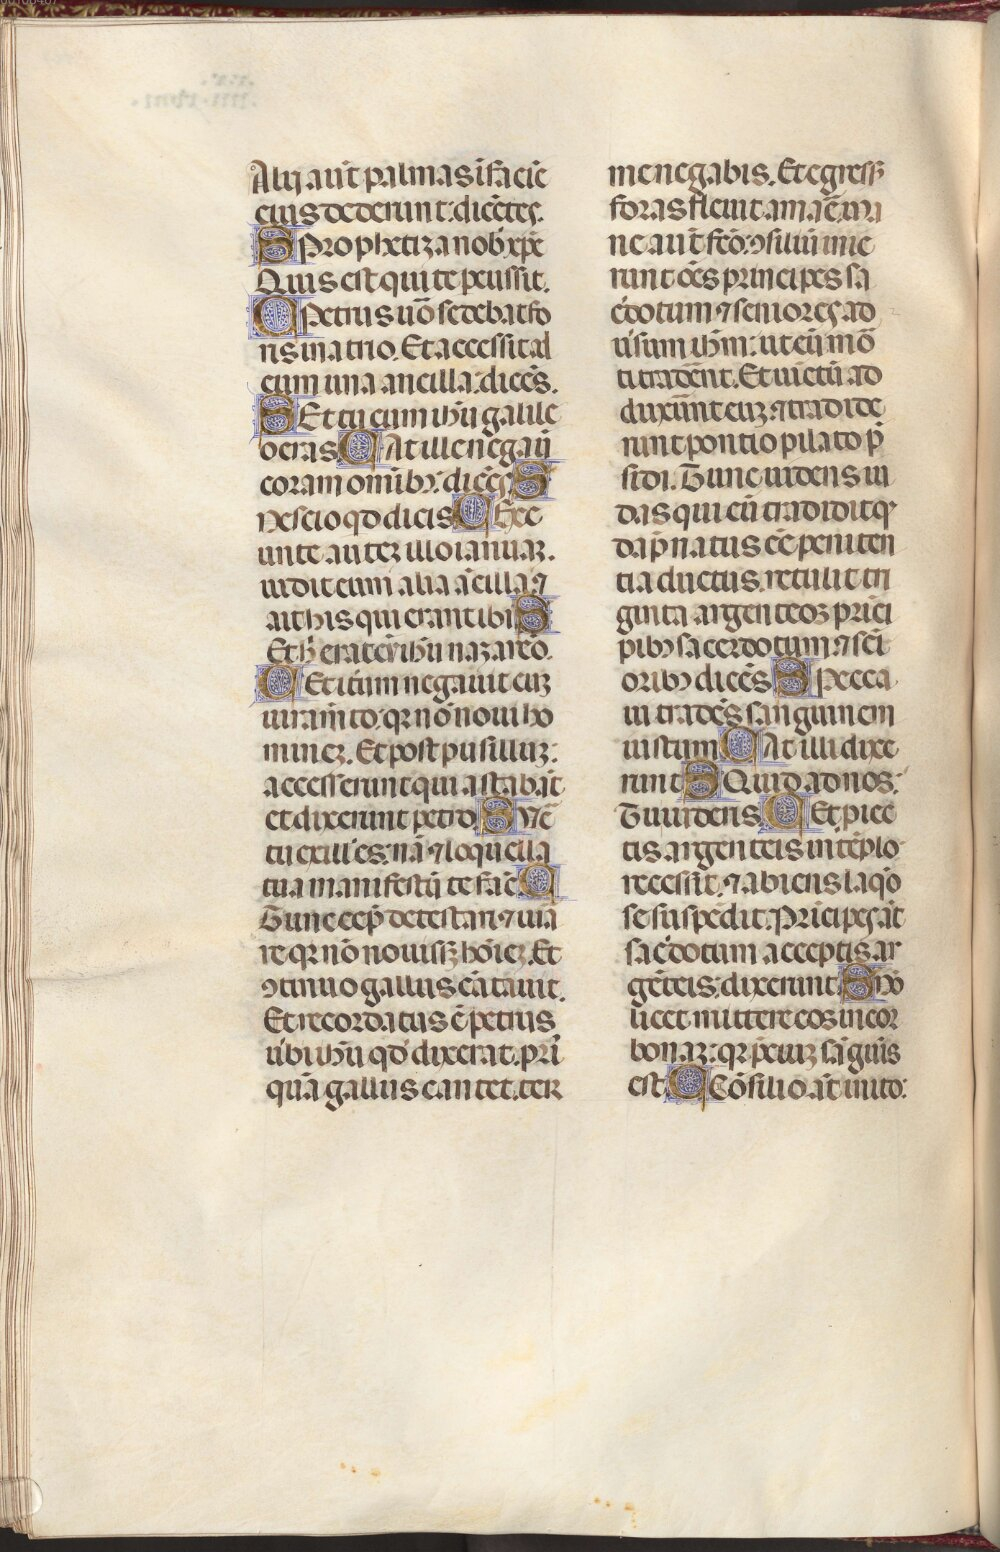 Alij aut̄ palmas ī faciē
eius dederunt: dicētes.
S Prophetiza nob̄ xp̄e
Quis est qui te p̄cussit.
C Petrus ūo sedebat fo
ris in atrio. Et accessit ad
eum una ancilla: dicēs.
S Et tu cum ihū galile
o eras. C At ille negauī
coram omībꝫ: dicēs S
Nescio qd̄ dicis. C Exe
unte autez illo ianuaꝫ.
uidit eum alia ācilla: ⁊
ait his qui erant ibi S
Et h̄ erat cū ihū nazareo.
C Et itm̄ negauit cuꝫ
iuramīto: qꝛ nō noui ho
minez. Et post pusilluꝫ:
accesserunt qui astabāt
et dixerunt petro. S Ue
tu ex ill' es: nā ⁊ loquella
tua manifestū te fac̄. C
Tunc cep̄ detestari ⁊ iura
re qꝛ nō nouissꝫ hoīez. Et
ꝯtinuo gallus cātauit.
Et recordatus ē petrus
ūbi ihū qd̄ dixerat. pri
quā gallus cantet. ter
me negabis. Et egress'
foras fleuit amāe. Ma
ne aut̄ fcō: ꝯsiliū inie
runt oēs principes sa
c̄dotum ⁊ seniores ad
ūsum ihm̄: ut eū mo
ti tradēnt. Et uīctū ad
duxūnt euꝫ. ⁊ tradide
runt pontio pilato p̄
sidi. Tunc uidens iu
das qui eū tradidit qꝫ
dāp̄natus eēt peniten
tia ductus. retulit tri
ginta argenteos prīci
pibꝫ sacerdotum ⁊ sēi
oribꝫ dicēs S Pecca
ui tradēs sanguinem
iustum C At illi dixe
runt S Quid ad nos:
Tu uidens. C Et piec
tis argenteis in tēplo
recessit. ⁊ abiens laqō
se suspēdit. Prīcipes āt
sac̄dotum acceptis ar
gēteis: dixerunt S Nō
licet mittere eos in cor
bonaꝫ: qꝛ p̄ciuꝫ sāguīs
est. C Cōsilio āt inito: